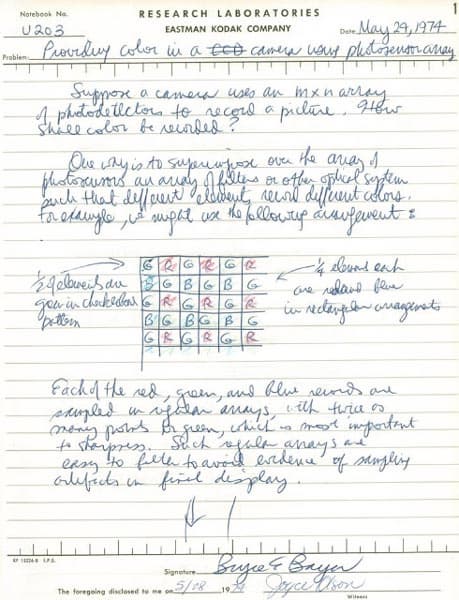 Notebook No.
U203
RESEARCH LABORATORIES
EASTMAN KODAK COMPANY
Date May 29, 1974
1
Problem: Providing color in a CCD camera using photosensor array
Suppose a camera uses an m x n array
of photodetectors to record a picture. How
shall color be recorded?
One way is to superimpose over the array of
photosensors an array of filters or other optical system
such that different elements record different colors.
For example, we might use the following arrangement:
1/2 of elements are
green in checkerboard
pattern
G R G R G R
B G B G B G
G R G R G R
B G B G B G
G R G R G R
1/4 elements each
are red and blue
in rectangular arrangements
Each of the red, green, and blue records are
sampled in regular arrays, with twice as
many points for green, which is most important
to sharpness. Such regular arrays are
easy to filter to avoid evidence of sampling
artifacts in final display.
Signature Bryce E Bayer
The foregoing disclosed to me on 5/28 19 74 Joyce
Witness